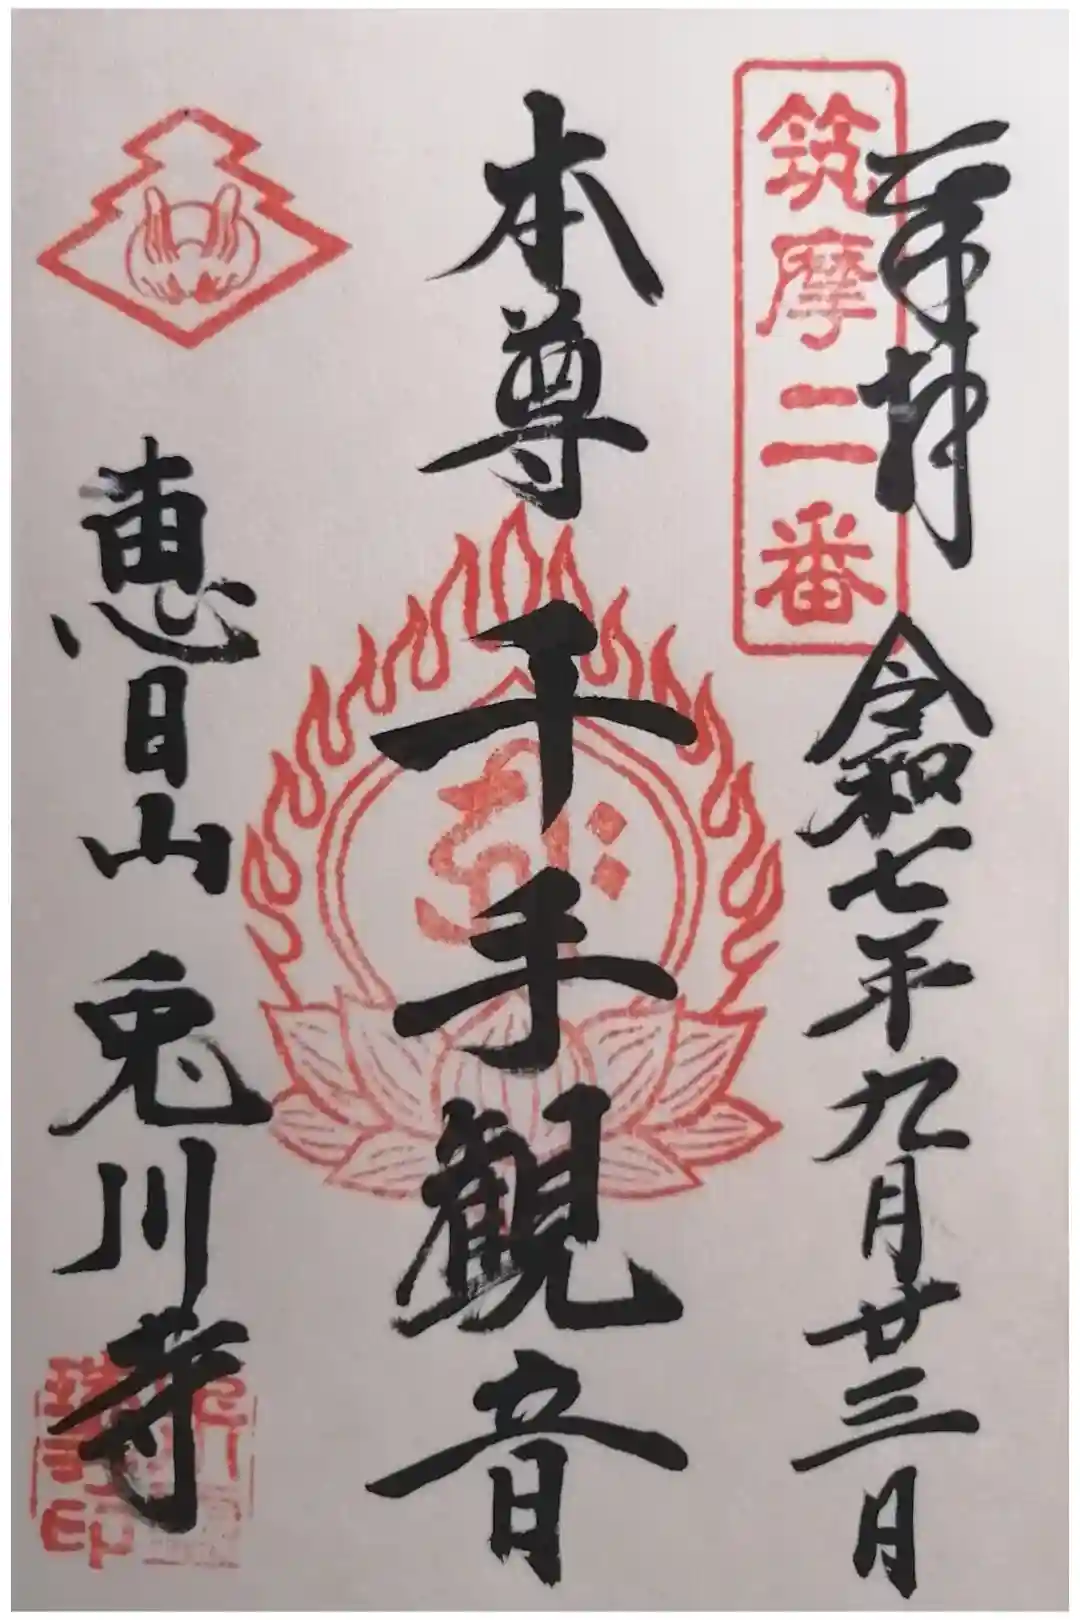 奉拝 令和七年九月廿三日
筑摩二番
本尊 千手観音
恵日山 兎川寺